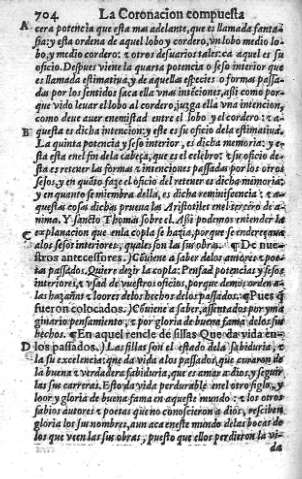 704. La Coronacion compuesta
A cera potencia que esta mas adelante, que es llamada fanta-
sia: y esta ordena de aquel lobo y cordero, vn lobo medio lo
bo, y medio cordero: z otros desuarios tales: ca aquel es su
oficio. Despues viene la quarta potencia o seso interior que
es llamada estimatiua, y de aquellas especies o formas passa-
das por los sentidos saca ella vnas intēciones, assi como por-
que vido leuar el lobo al cordero, juzga ella vna intencion,
como deue auer enemistad entre el lobo y el cordero: z a-
questa es dicha intencion: y este es su oficio dela estimatiua.
B La quinta potencia y seso interior, es dicha memoria: y e-
sta esta enel fin dela cabeça, que es el celebro: z su oficio de-
sta es retener las formas z intenciones passadas por los otros
sesos, y en quāto faze el oficio del retener es dicha memoria;
y en quanto se miembra della, es dicha reminiscencia: z a-
questas cosas dichas prueua las Aristotiles enel tercero de a-
nima. Y Sancto Thomas sobre el. Assi podemos entender la
C explanacion que enla copla se hazia, porque se endereça ua
alos sesos interiores, quales son las sus obras. ¶ De nue-
stros antecessores. ) Cōuiene a saber delos autores z poe-
tas passados. Quiere dezir la copla: Pensad potencias y sesos
interiores, z vsad de vuestros oficios, porque demos orden a
las hazañas z loores delos hechos delos passados. ¶ Pues q̄
fueron colocados. ) Cōuiene a saber, assentados por yma
ginario pensamiento, z por gloria de buena fama delos sus
hechos. ¶ En aquel rende de sillas Que da vida en-
D los passados. ) Las sillas son el estado dela sabiduria, z
la su excelencia: que da vida alos passados, que curaron de
la buena z verdadera sabiduria, que es amar a dios, y seguir
las sus carreras. Esto da vida perdurable enel otro siglo, y
loor y gloria de buena fama en aqueste mundo: z los otros
sabios autores z poetas que no conoscieron a dios, resciben
gloria los sus nombres, aun aca eneste mundo delas bocas de
los que veen las sus obras, puesto que ellos perdieron la vi-
da